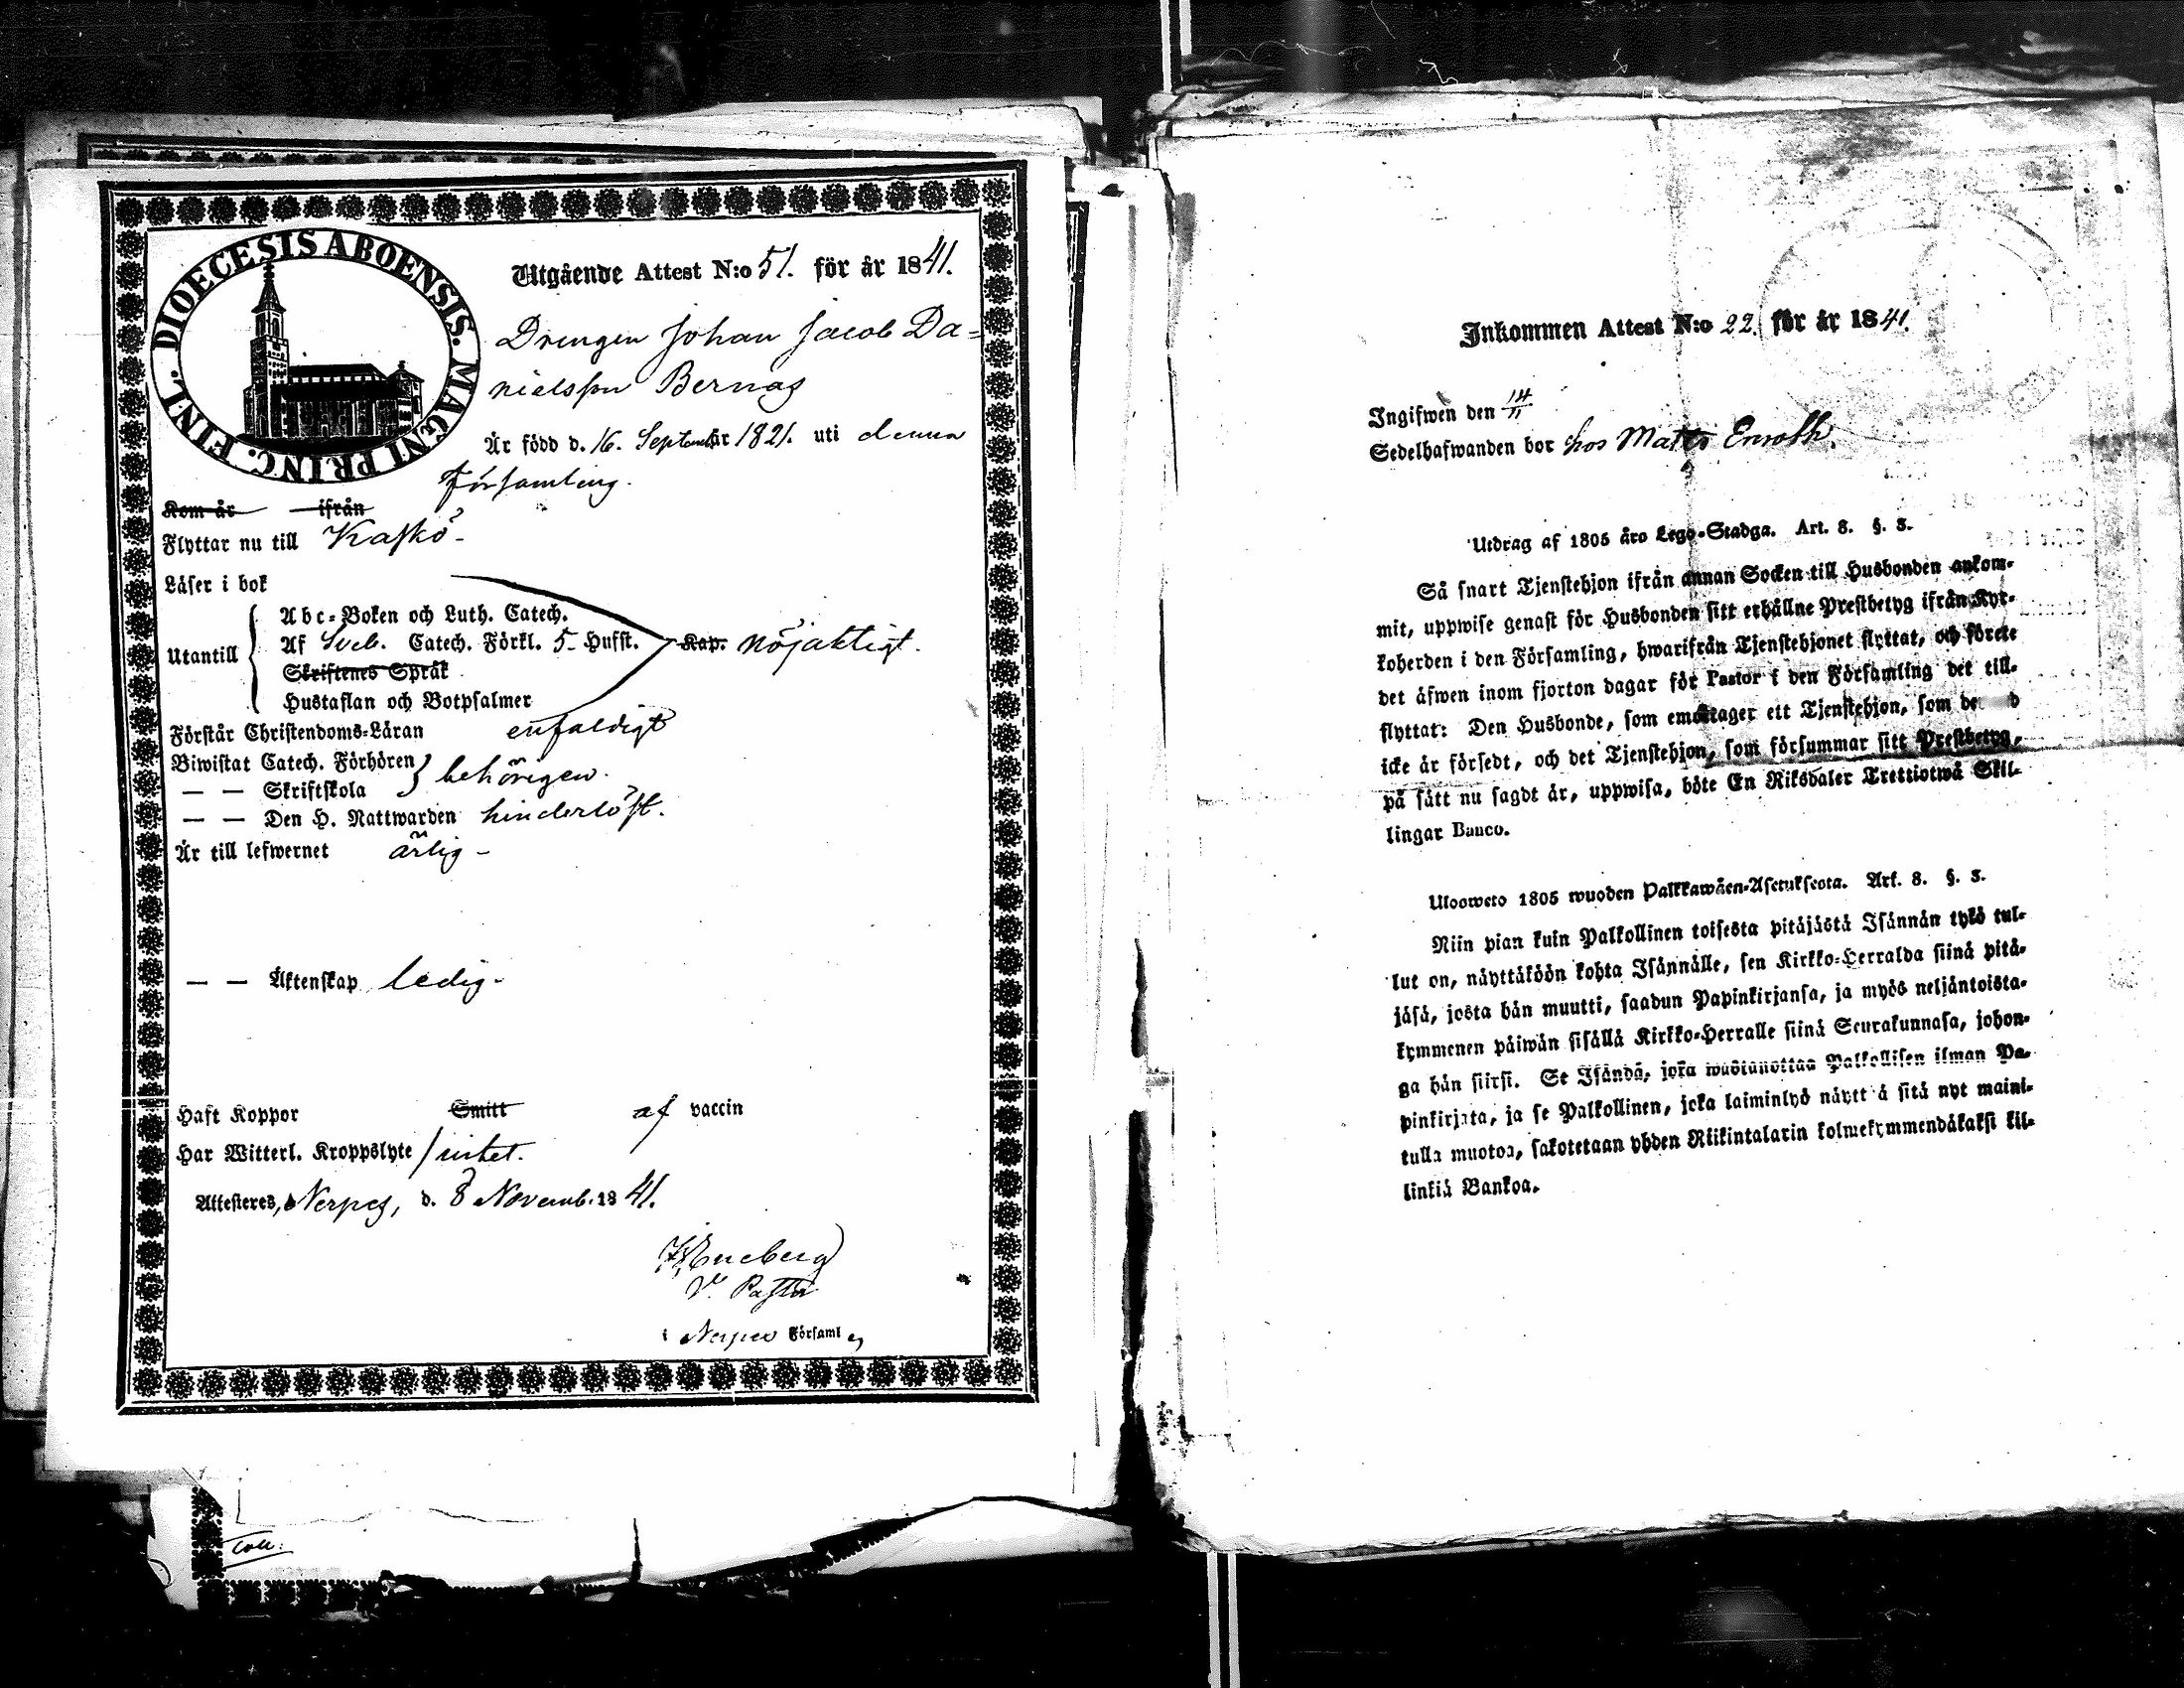 DIOECESIS ABOENSIS. MAGNI PRINC. FINL.
Utgående Attest N:o 51. för år 1841.
Drengen Johan Jacob Da=
nielsson Bernas
Är född d. 16. September 1821. uti denna
Församling.
Kom år ifrån
Flyttar nu till Kaskö
Läser i bok
Abc-Boken och Luth. Catech.
Utantill Af Sveb. Catech. Förkl. 5 Hufst. Kap. nöjaktigt.
Skriftenes Språk
Hustaflan och Botpsalmer
Förstår Christendoms-Läran enfaldigt
Biwistat Catech. Förhören
— — Skriftskola behörigen.
— — Den H. Nattwarden hinderlöst.
Är till lefwernet ärlig -
— — Äktenskap ledig -
Haft Koppor Smitt af vaccin
Har Witterl. Kroppslyte intet.
Attesteres, Nerpes, d. 8 Novemb. 1841.
V. Pastor
i Nerpes Församl
Coll.
Inkommen Attest N:o 22. för år 1841.
Ingifwen den 14/11
Sedelhafwanden bor hos Matts Enroth.
Utdrag af 1805 års Lego-Stadga. Art. 8. §. 3.
Så snart Tjenstehjon ifrån annan Socken till Husbonden ankom-
mit, uppwise genast för Husbonden sitt erhållne Prestbetyg ifrån Kyr-
koherden i den Församling, hwarifrån Tjenstehjonet flyttat, och förete
det äfwen inom fjorton dagar för Pastor i den Församling det till-
flyttat: Den Husbonde, som emottager ett Tjenstehjon, som
icke är försedt, och det Tjenstehjon, som försummar sitt Prestbetyg,
på sätt nu sagdt är, uppwisa, böte En Riksdaler Trettiotwå Skil-
lingar Banco.
Uloosweto 1805 wuoden Palkkawäen-Asetuksesta. Art. 8. §. 3.
Niin pian kuin Palkollinen toisesta pitäjästä Isännän tykö tul-
lut on, näyttäköön kohta Isännälle, sen Kirkko-Herralda siinä pitä-
jäsä, josta hän muutti, saadun Papinkirjansa, ja myös neljäntoista-
kymmenen päiwän sisällä Kirkko-Herralle siinä Seurakunnasa, johon-
ga hän siirsi. Se Isändä, joka wastanottaa Palkollisen ilman Pa-
pinkirjata, ja se Palkollinen, joka laiminlyö näytt ä sitä nyt maini-
tulla muotoa, sakotetaan yhden Riikintalarin kolmekymmendäkaksi kil-
linkiä Bankoa.